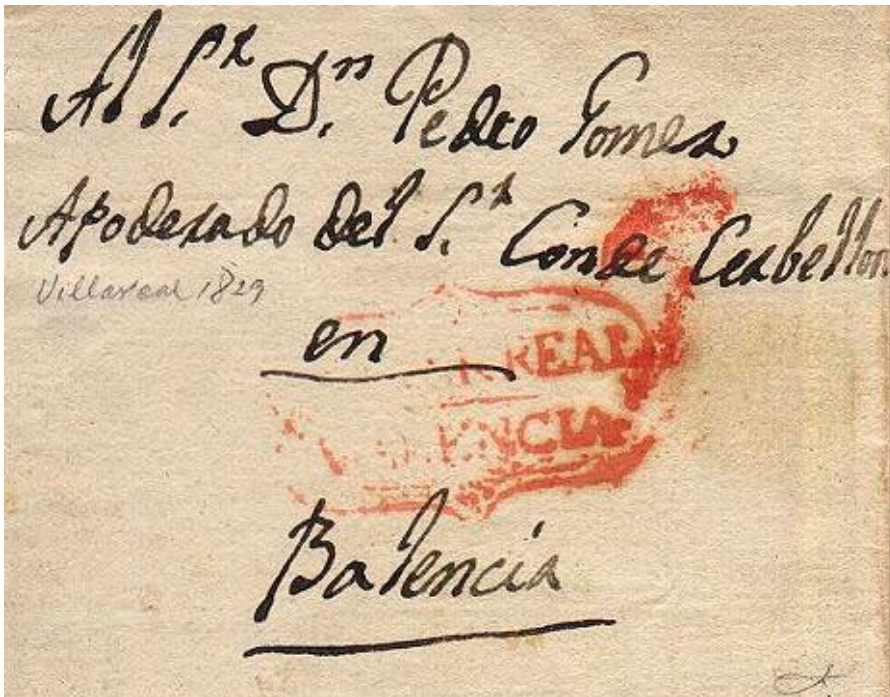 Al S.r D.n Pedro Gomez
Apoderado del S.r Conde Cerbellon
Villareal 1829
en
REAL
ENCIA
Balencia